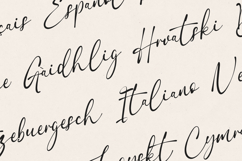 çais Español
Gaidhlig Hrvatski
zebuergesch Italiano Ne
Cymr